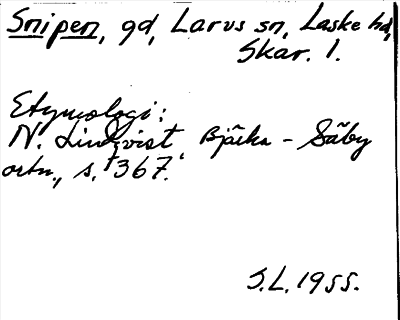 Snipen, gd, Larvs sn, Laske hd,
Skar. l.
Etymologi:
N. Lindqvist, Bjärka - Säby
ortn., s. 367.
S.L. 1955.